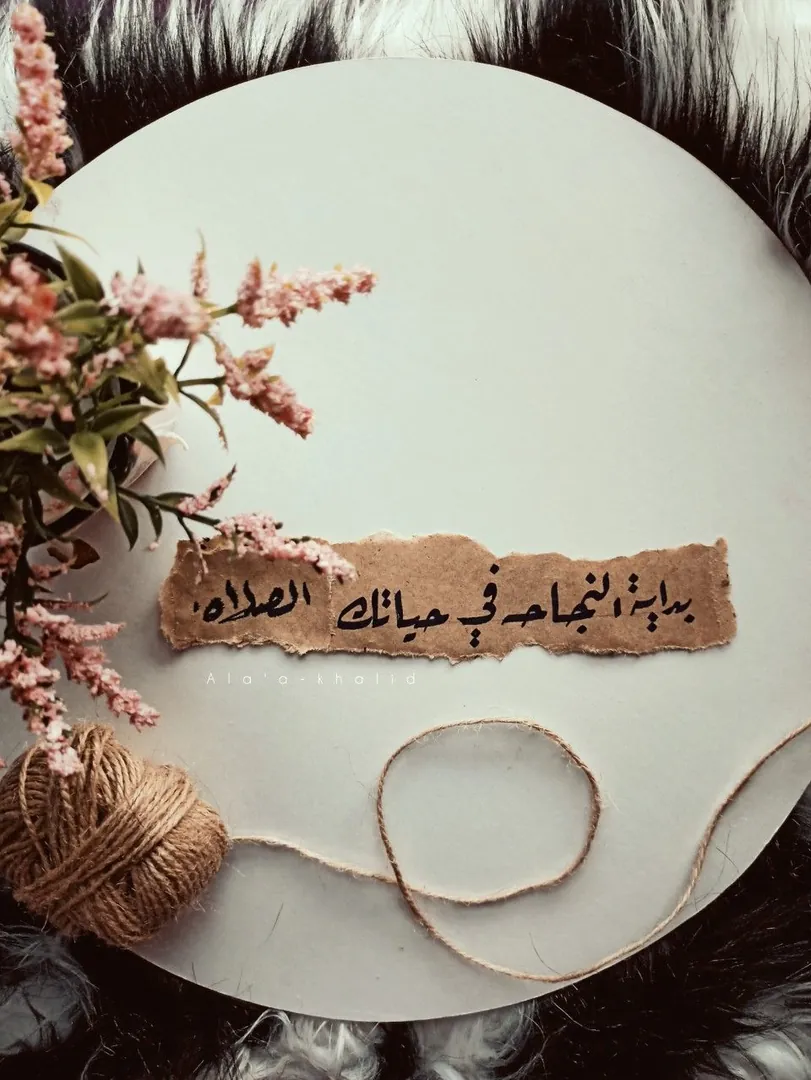 بداية النجاح في حياتك الصلاه.
Ala'a-khalid